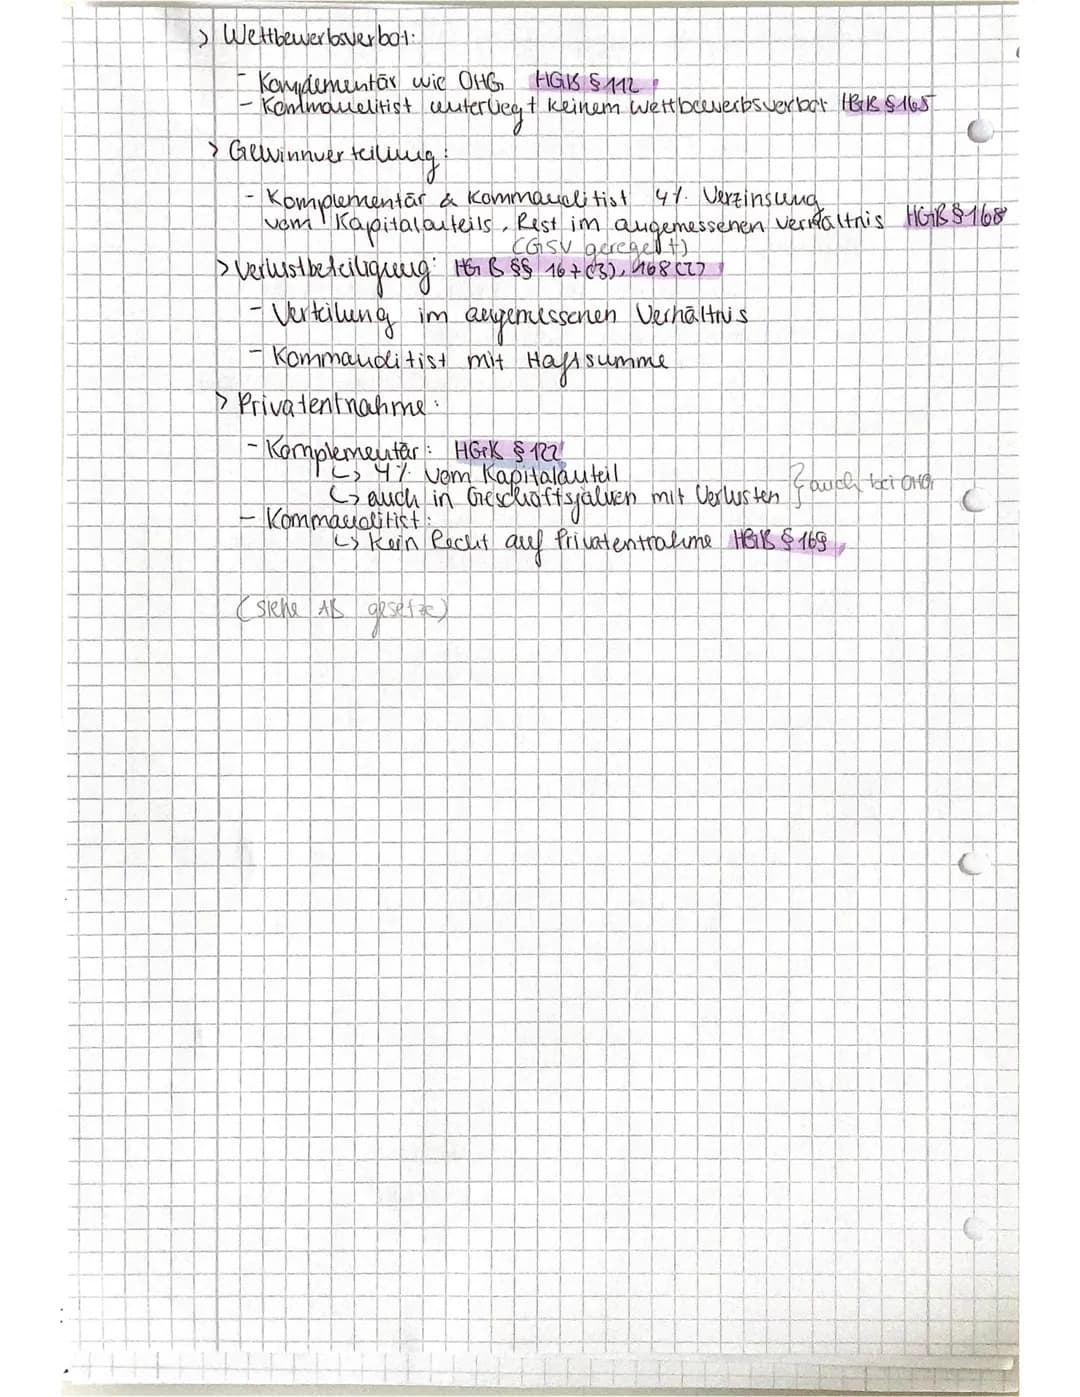 > Wettbewerbsverbot:
- Komplementär wie OHG HGB § 112
- Kommanditist unterliegt keinem Wettbewerbsverbot HGB § 165
> Gewinnverteilung:
- Komplementär & Kommanditist 4% Verzinsung
vom Kapitalanteils, Rest im angemessenen Verhältnis HGB § 168
(GSV geregelt)
> Verlustbeteiligung: HGB §§ 167(3), 168(2)
- Verteilung im angemessenen Verhältnis
- Kommanditist mit Haftsumme
> Privatentnahme:
- Komplementär: HGB § 122
↳ 4% vom Kapitalanteil
↳ auch in Geschäftsjahren mit Verlusten } auch bei OHG
- Kommanditist:
↳ Kein Recht auf Privatentnahme HGB § 169
(siehe AB gesetze)